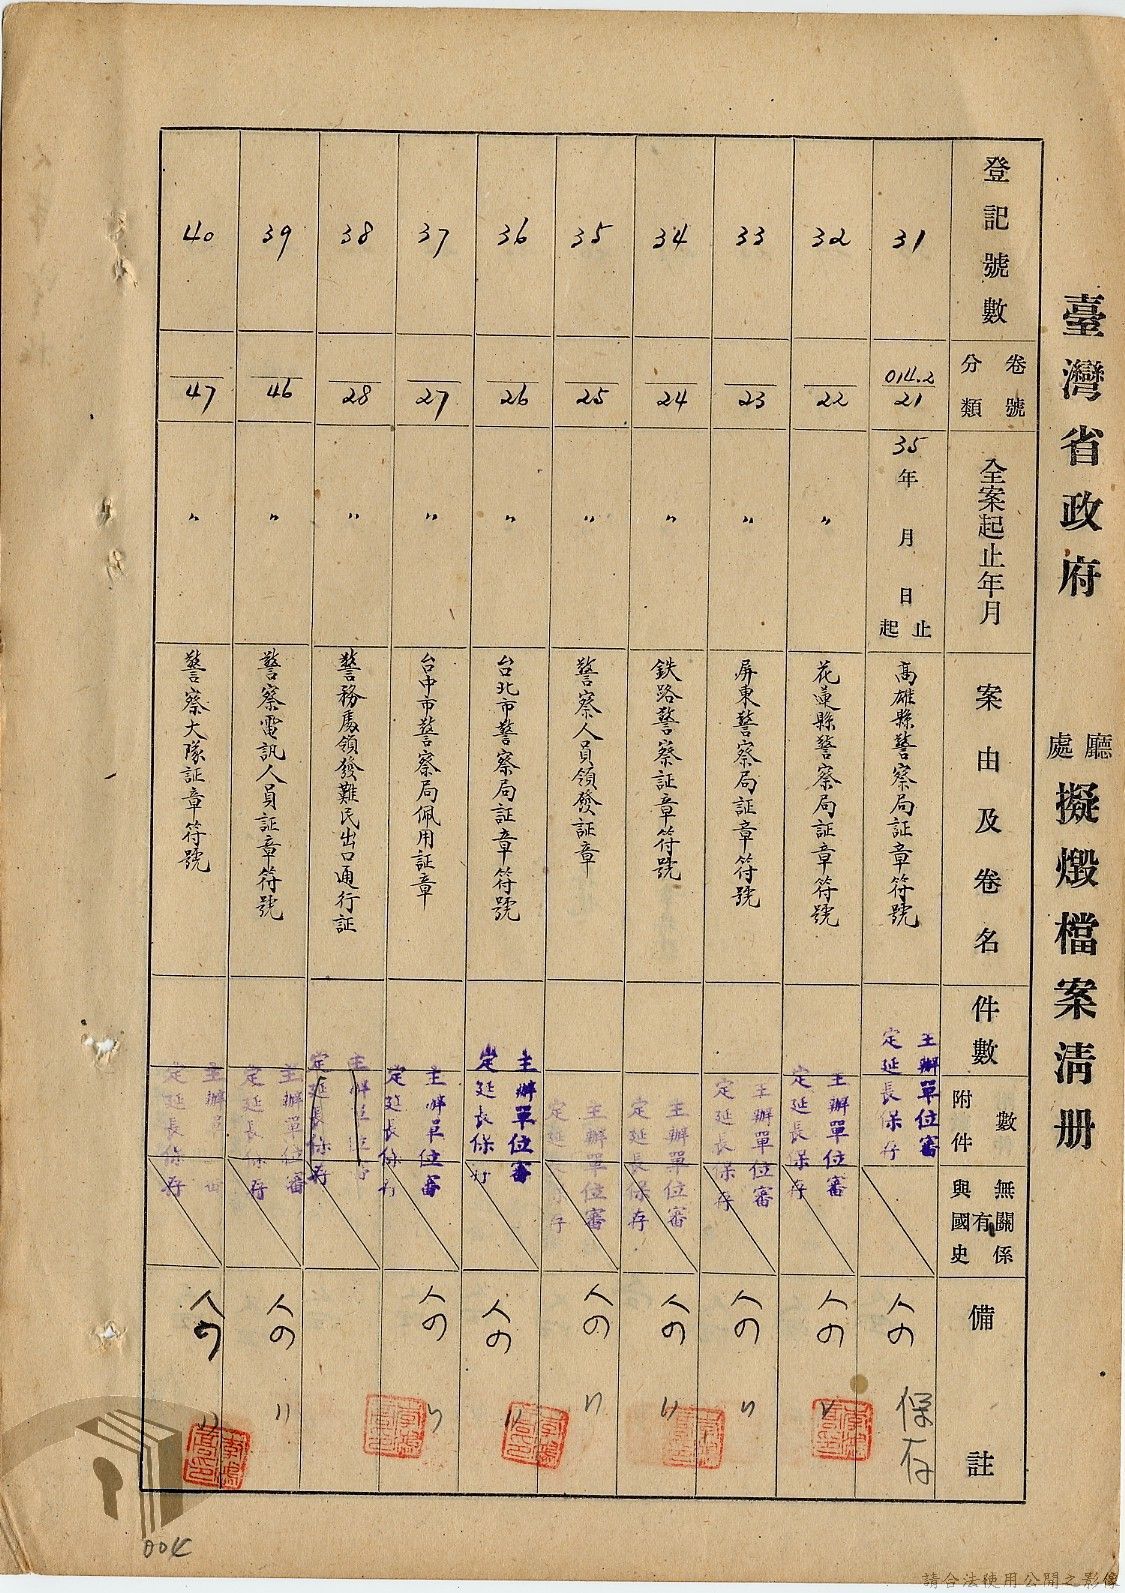 臺灣省政府 廳處 擬燬檔案清册
登記號數
卷號
分類
全案起止年月
案由及卷名
件數
附件數
與國史有無關係
備註
31
014.2
21
35年 月 日 止起
高雄縣警察局証章符號
主辦單位審
定延長保存
人の
保存
32
22
〃
花蓮縣警察局証章符號
主辦單位審
定延長保存
人の
〃
33
23
〃
屏東警察局証章符號
主辦單位審
定延長保存
人の
〃
34
24
〃
鉄路警察証章符號
主辦單位審
定延長保存
人の
〃
35
25
〃
警察人員領發証章
主辦單位審
定延長保存
人の
〃
36
26
〃
台北市警察局証章符號
主辦單位審
定延長保存
人の
〃
37
27
〃
台中市警察局佩用証章
主辦單位審
定延長保存
人の
〃
38
28
〃
警務處領發難民出口通行証
主辦單位審
定延長保存
39
46
〃
警察電訊人員証章符號
主辦單位審
定延長保存
人の
〃
40
47
〃
警察大隊証章符號
主辦單
定延長保存
人の
〃
004
請合法使用公開之影像